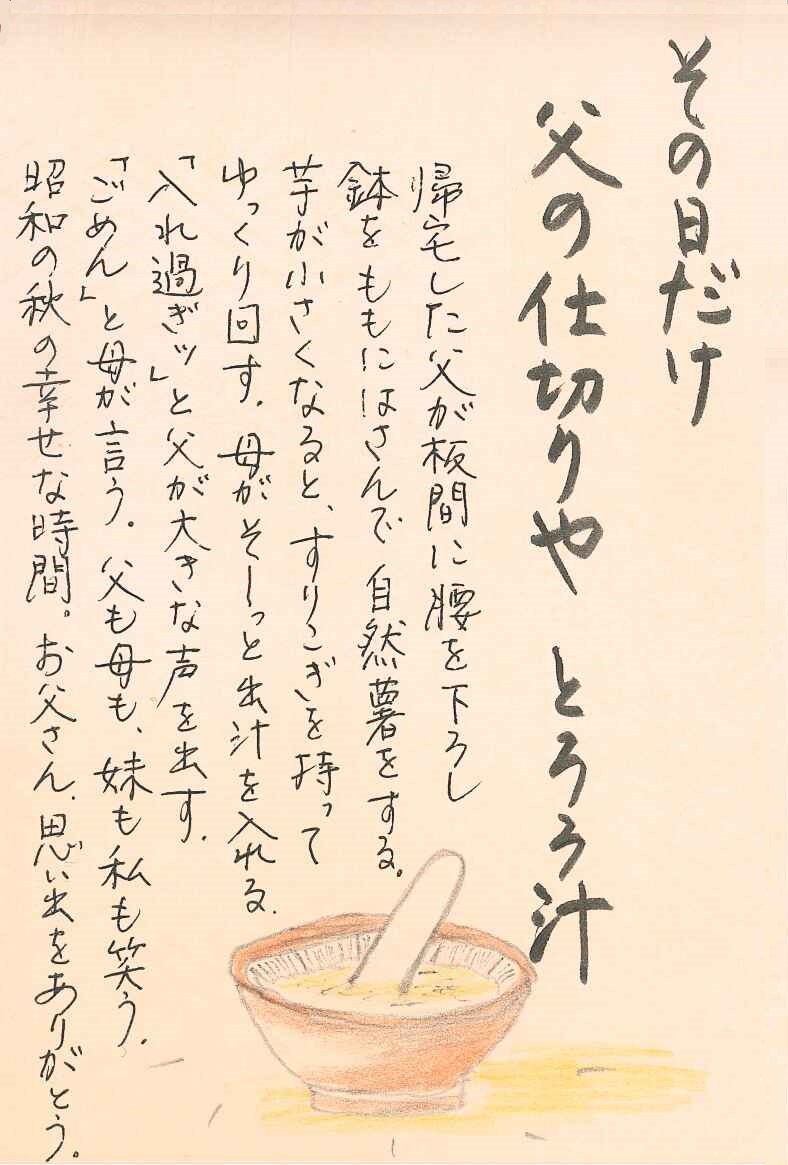 その日だけ
父の仕切りや とろろ汁
帰宅した父が板間に腰を下ろし
鉢をももにはさんで自然薯をする。
芋が小さくなると、すりこぎを持って
ゆっくり回す。母がそーっと出汁を入れる。
「入れ過ぎッ」と父が大きな声を出す。
「ごめん」と母が言う。父も母も、妹も私も笑う。
昭和の秋の幸せな時間。お父さん、思い出をありがとう。